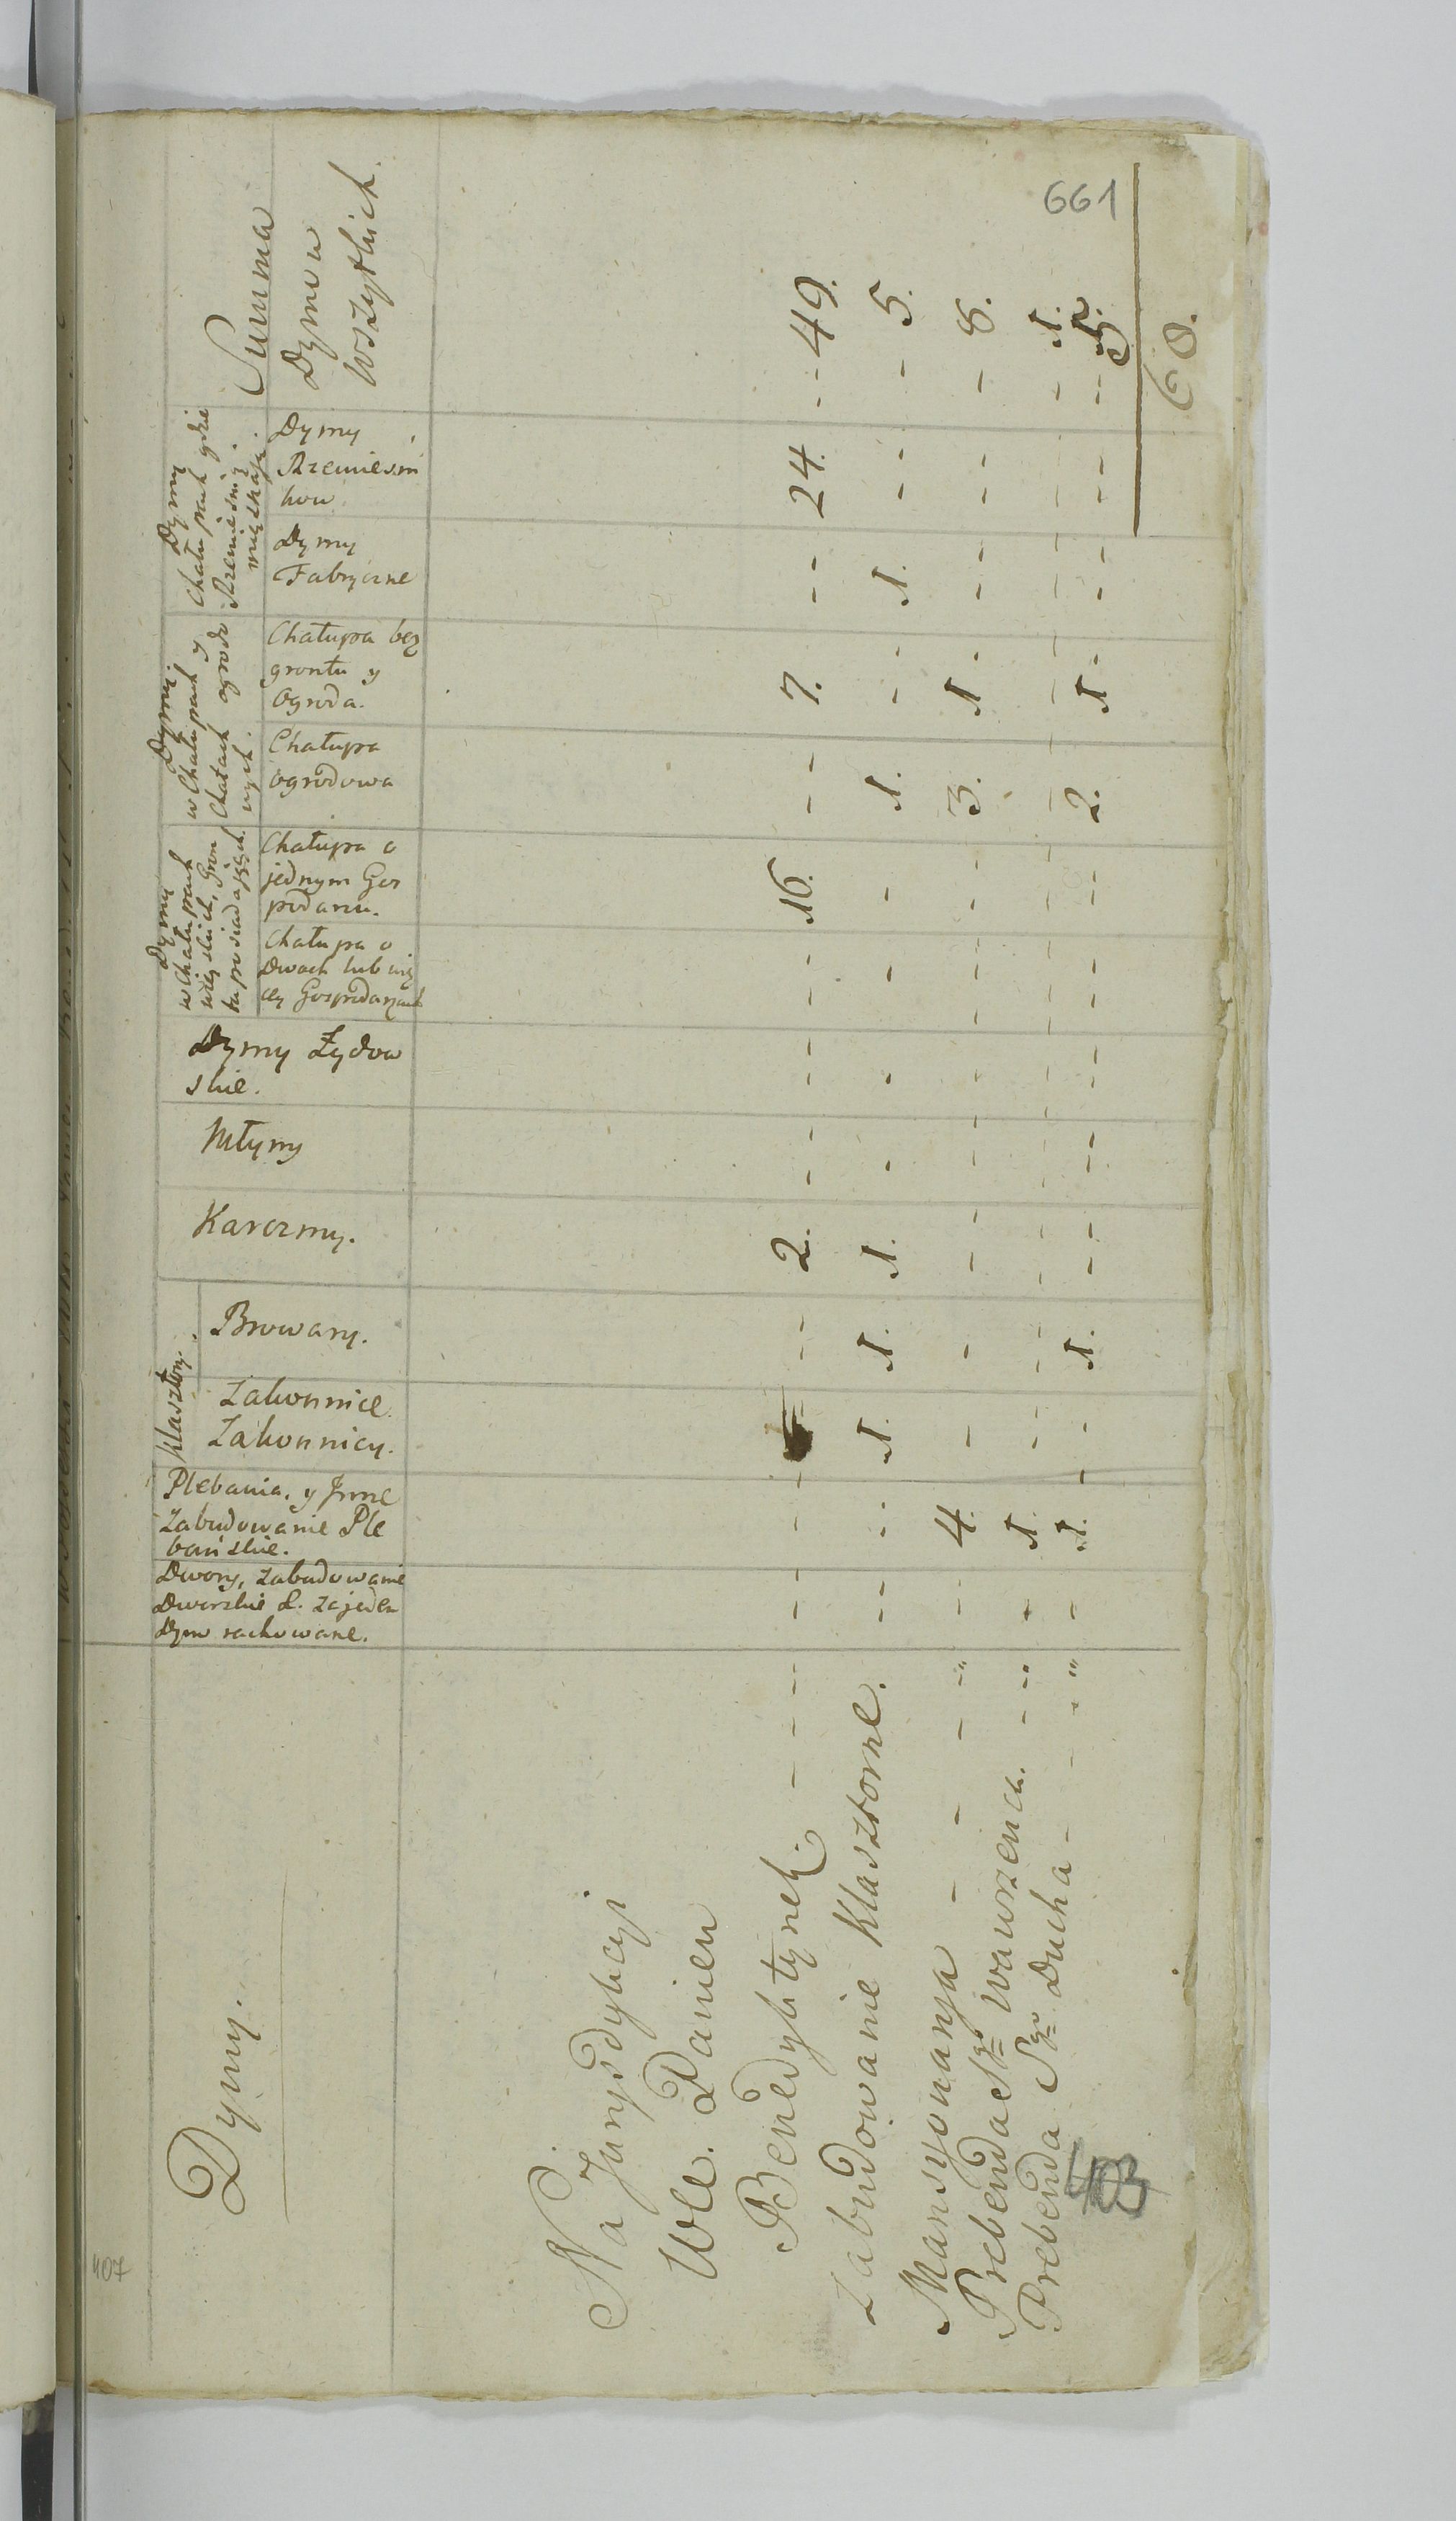 661
407
Dymy.
Dwory, zabudowanie
Dworskie d. za jeden
Dym rachowane.
Plebania, y Inne
zabudowanie Ple
bańskie.
Klasztory.
Zakonnice.
Zakonnicy.
Browary.
Karczmy.
Młyny
Dymy Żydow
skie.
Dymy
w Chałupach
wieyskich, Gron
tu posiadających
Chałupa o
Dwoch lub wię
cey Gospodarzach
Chałupa o
jednym Gos
podarzu.
Dymy
w Chałupach y
Chatach ogrodo
wych.
Chałupa
ogrodowa
Chałupa bez
grontu y
Ogroda.
Dymy
Chałupach gdzie
Rzemieśnicy
mieszkają.
Dymy
Fabryczne
Dymy
Rzemiesni
kow
Summa
Dymow
Wszystkich.
Na Jurysdykcyi
Wle. Panien
Benedyktynek. - - - - - - - - 2. - - - - - - 16. - - 7. - - 24. - - 49.
Zabudowanie Klasztorne. - - - - 1. 1. 1. - - - - 1. - - 1. - - - 5.
Mansyonarya - - - - - - 4. - - - - - - - - - - 3. 1. - - - - - - 8.
Prebenda Sgo Wawrzenca. - - - 1. - - - - - - - - - - - - - - - - 1.
Prebenda Sgo Ducha - - - - 1. - - 1. - - - - - - - - - - 2. 1. - - - - - - 5.
60.
403